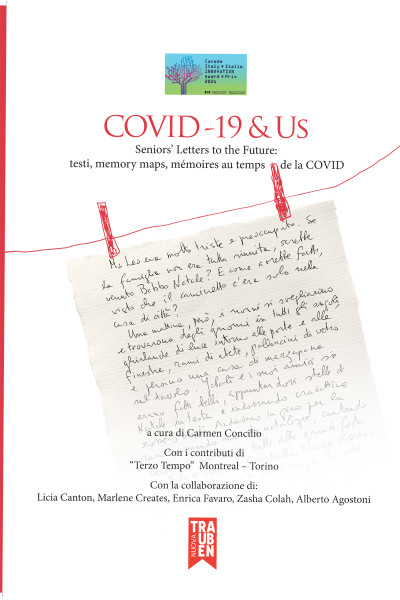 Canada
Italy + Italia
INNOVATION
Award + Prix
2021
COVID-19 & US
Seniors' Letters to the Future:
testi, memory maps, mémoires au temps de la COVID
Ma Leo era molto triste e preoccupato. Se
la famiglia non era tutta riunita, sarebbe
venuto Babbo Natale? E come avrebbe fatto,
visto che il caminetto c'era solo nella
casa di città?
Una mattina, però, i nonni si svegliarono
e trovarono degli gnomi in tutti gli angoli,
ghirlande di luce intorno alle porte e alle
finestre, rami di abete, palloncini di vetro
e persino una casa di marzapane
sul tavolo. i suoi amici si
erano fatti belli, appuntandosi stelle di
Natale in testa e indossando cravattine
rosse in giro per la
a cura di Carmen Concilio
Con i contributi di
"Terzo Tempo" Montreal – Torino
Con la collaborazione di:
Licia Canton, Marlene Creates, Enrica Favaro, Zasha Colah, Alberto Agostoni
NUOVA
TRA
UB
EN